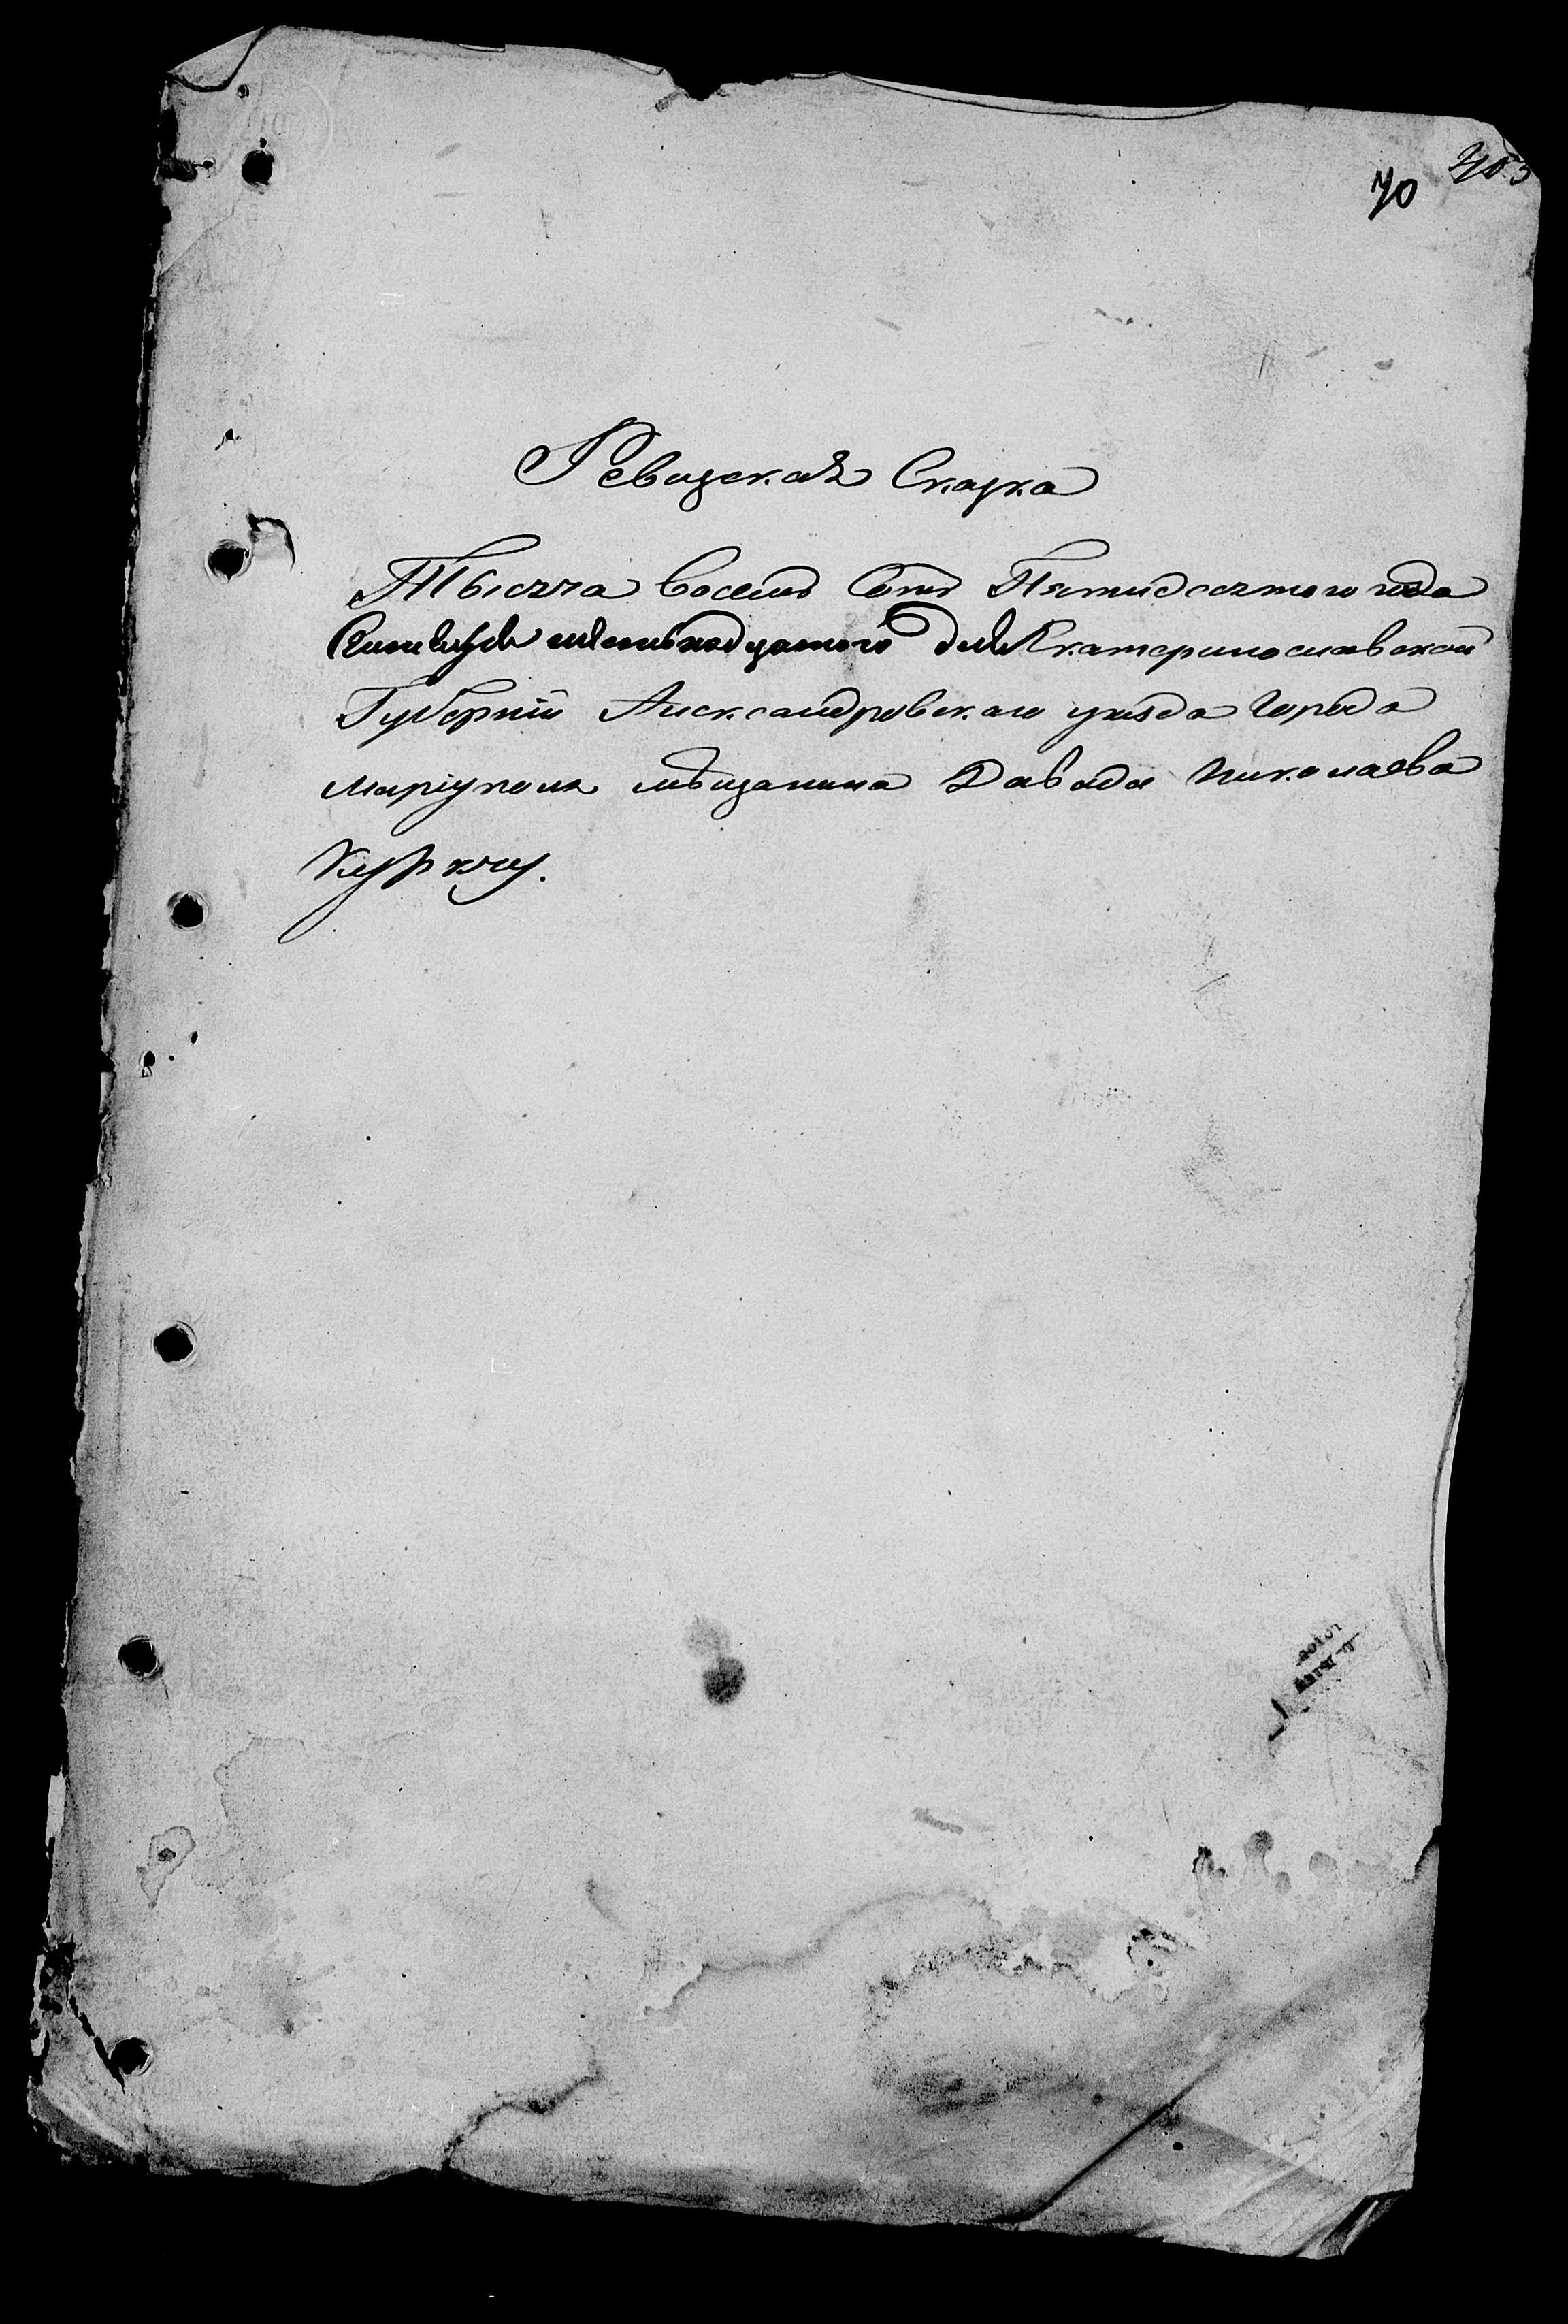 70 403
Ревизская Сказка
Тысяча восемь Сотъ Пятидесятого года
дня Екатеринославской
Губерніи Александровскаго уѣзда города
Маріуполя мѣщанина Давида Николаева